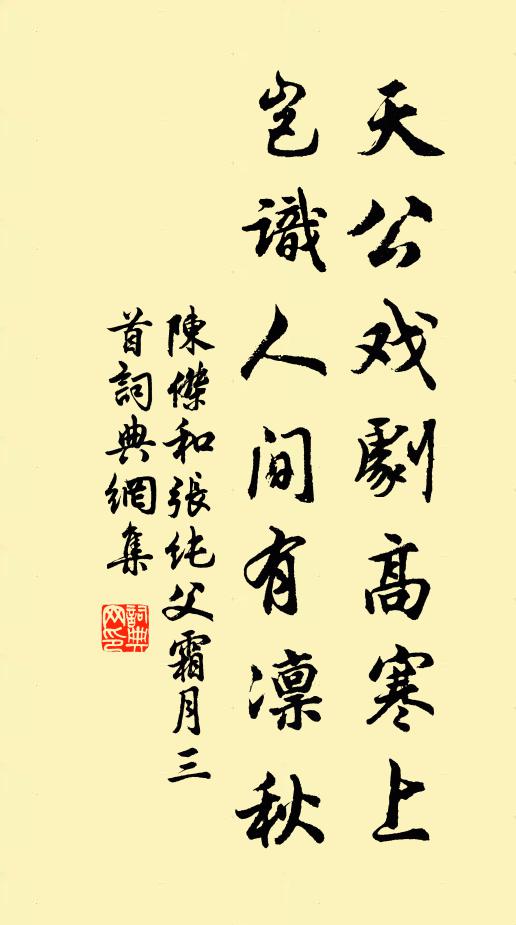 天公戏劇高寒上
岂識人间有凛秋
陳傑和張纯父霜月三
首詞典網集
詞典网印